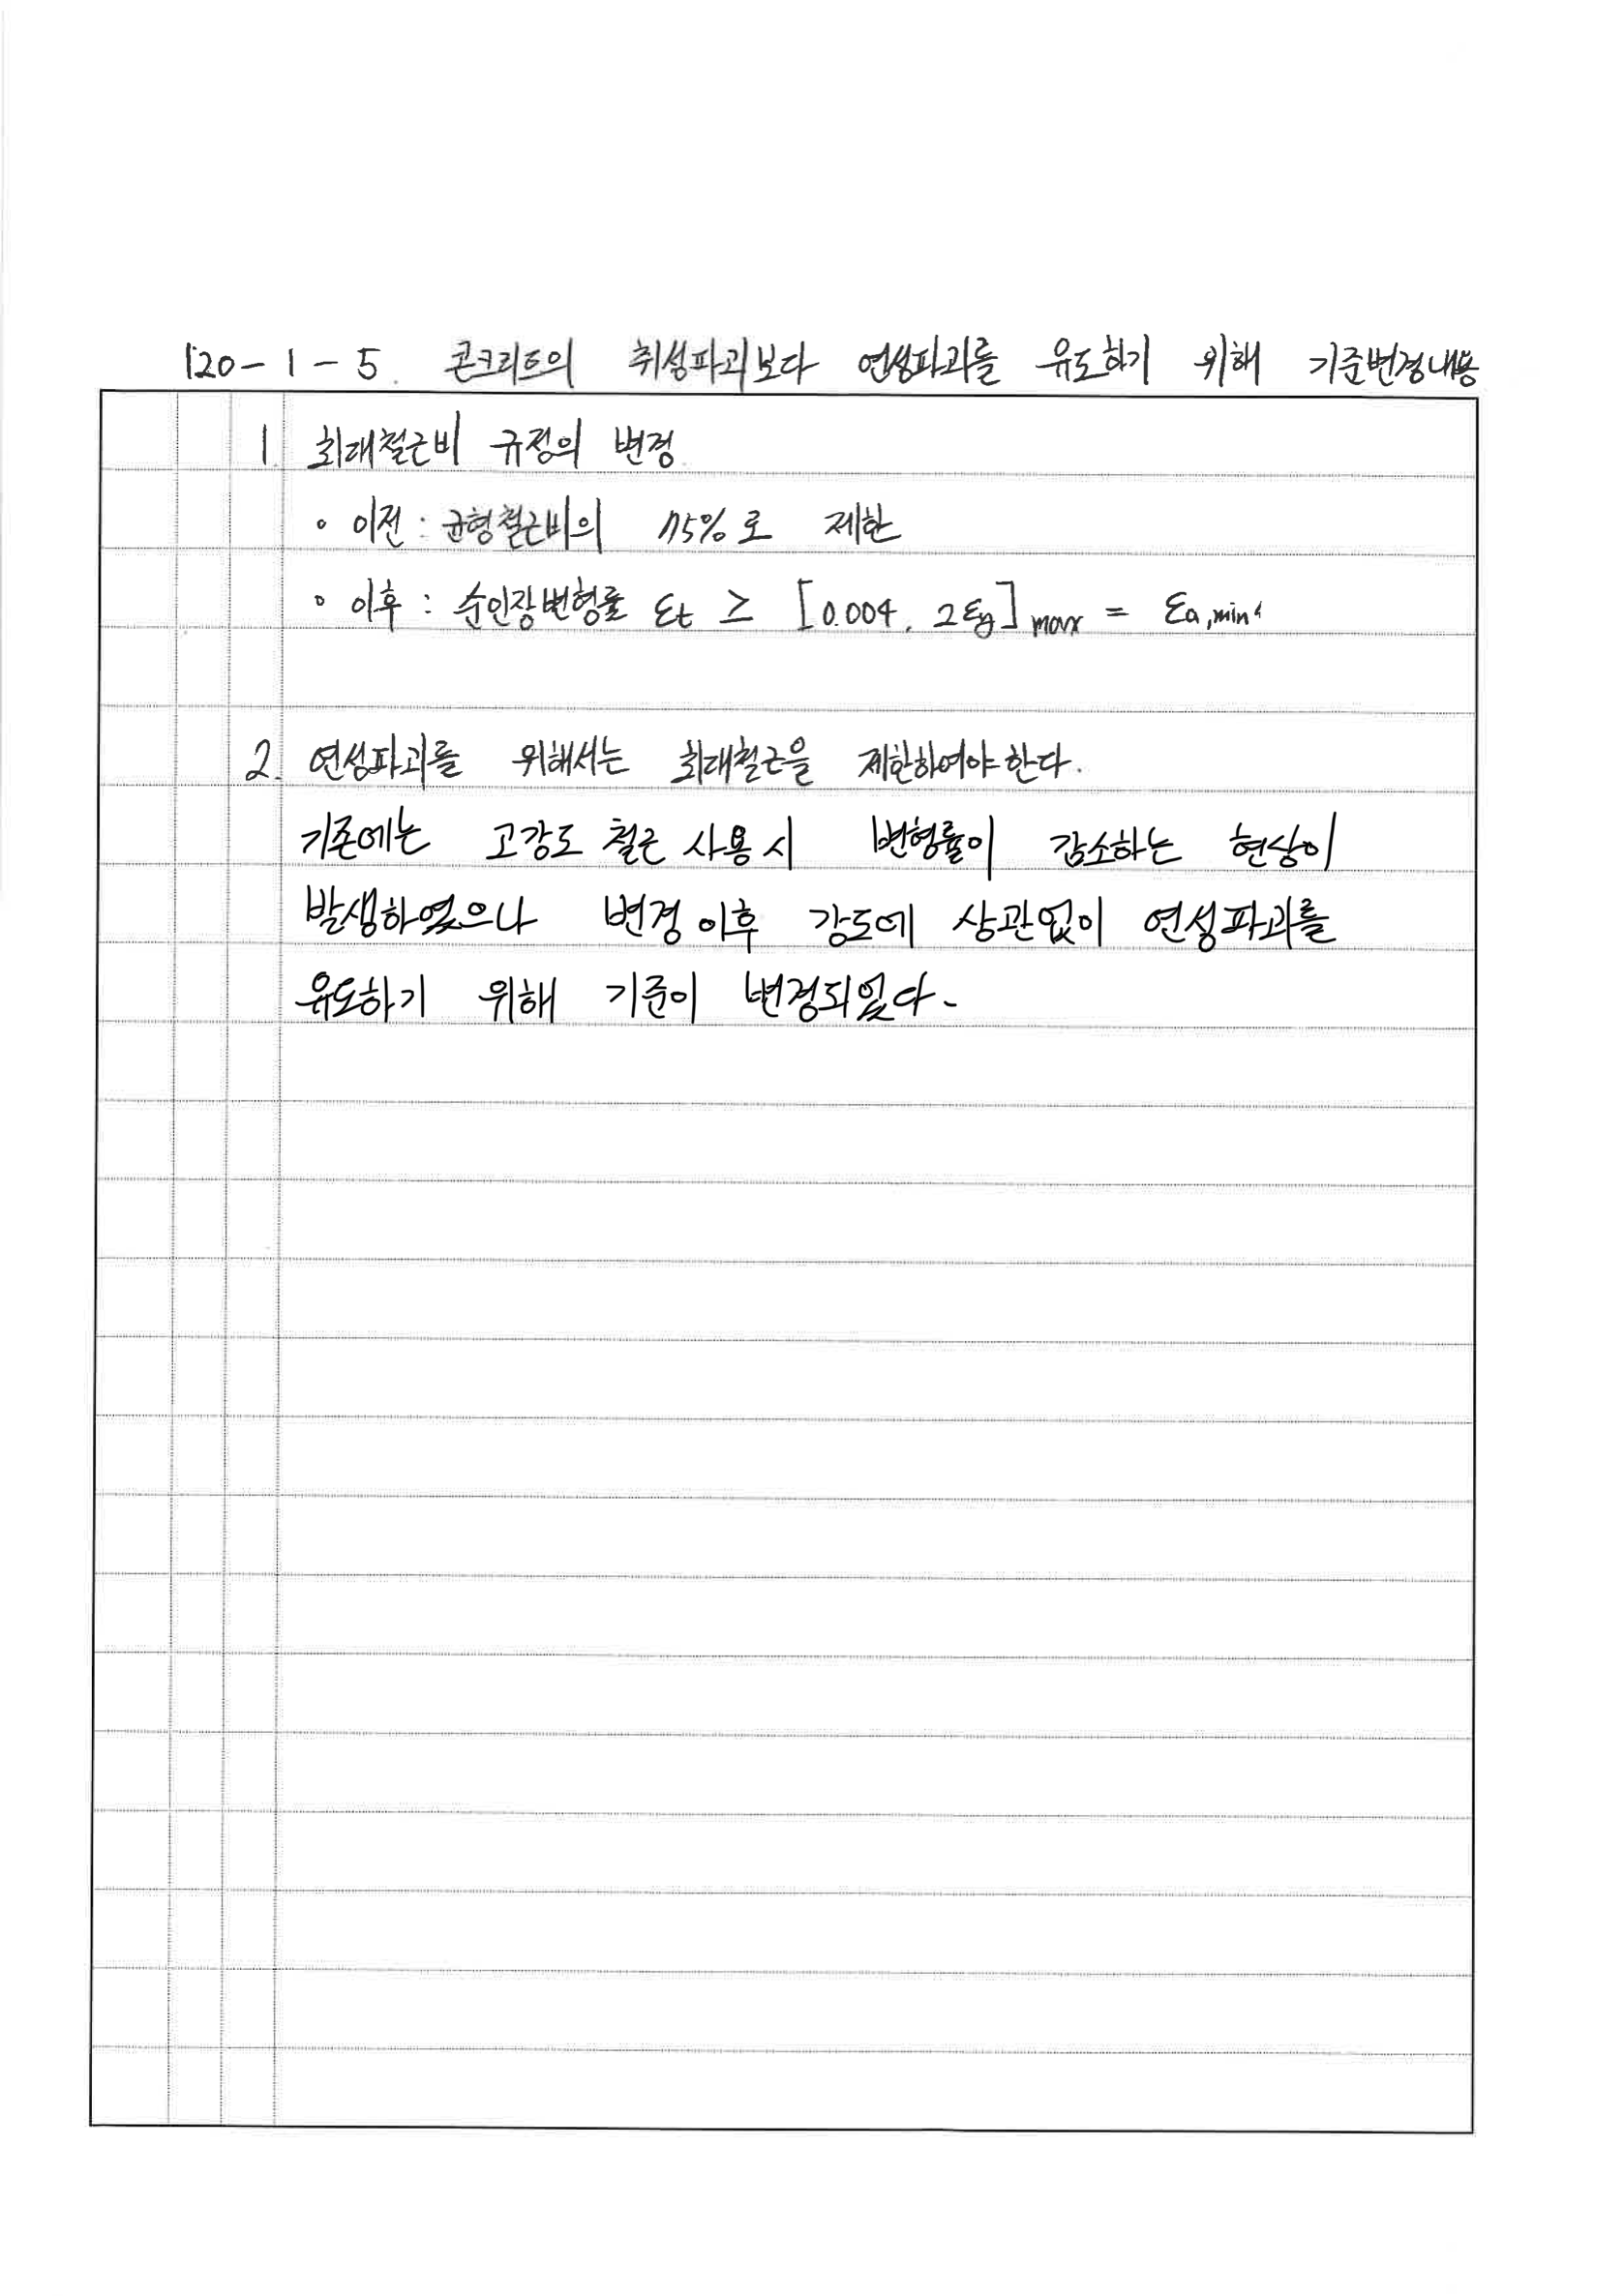 120-1-5. 콘크리트의 취성파괴보다 연성파괴를 유도하기 위해 기준변경내용
1. 최대철근비 규정의 변경
∘ 이전 : 균형철근비의 75%로 제한
∘ 이후 : 순인장변형률 εt ≥ [0.004, 2εy]max = εa,min
2. 연성파괴를 위해서는 최대철근을 제한하여야한다.
기존에는 고강도 철근 사용시 변형률이 감소하는 현상이
발생하였으나 변경 이후 강도에 상관없이 연성파괴를
유도하기 위해 기준이 변경되었다.